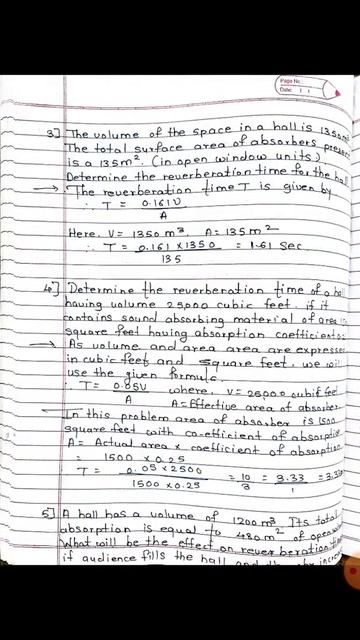 Page No.
Date
3] The volume of the space in a hall is 1350m
The total surface area of absorbers present
is a 135m². (in open window units.)
Determine the reverberation time for the hall
→ The reverberation time T is given by
∴ T = 0.161V
A
Here, V= 1350 m³. A= 135 m²
∴ T = 0.161 × 1350 = 1.61 Sec
135
4] Determine the reverberation time of a hall
having volume 25,000 cubic feet. if it
contains sound absorbing material of area
square feet having absorption coefficient
→ As volume and area area are expresses
in cubic feet and square feet, we will
use the given formula.
∴ T = 0.05V where, V= 25000 cubic feet
A A= Effective area of absorber
In this problem area of absorber is 1500
square feet with co-efficient of absorption
A = Actual area × coefficient of absorption
= 1500 × 0.25
T = 0.05 × 2500 = 10 = 3.33 = 3.33
1500 × 0.25 3 1
5] A hall has a volume of 1200m³. Its total
absorption is equal to 480m² of open
What will be the effect on reverberation time
if audience fills the hall and